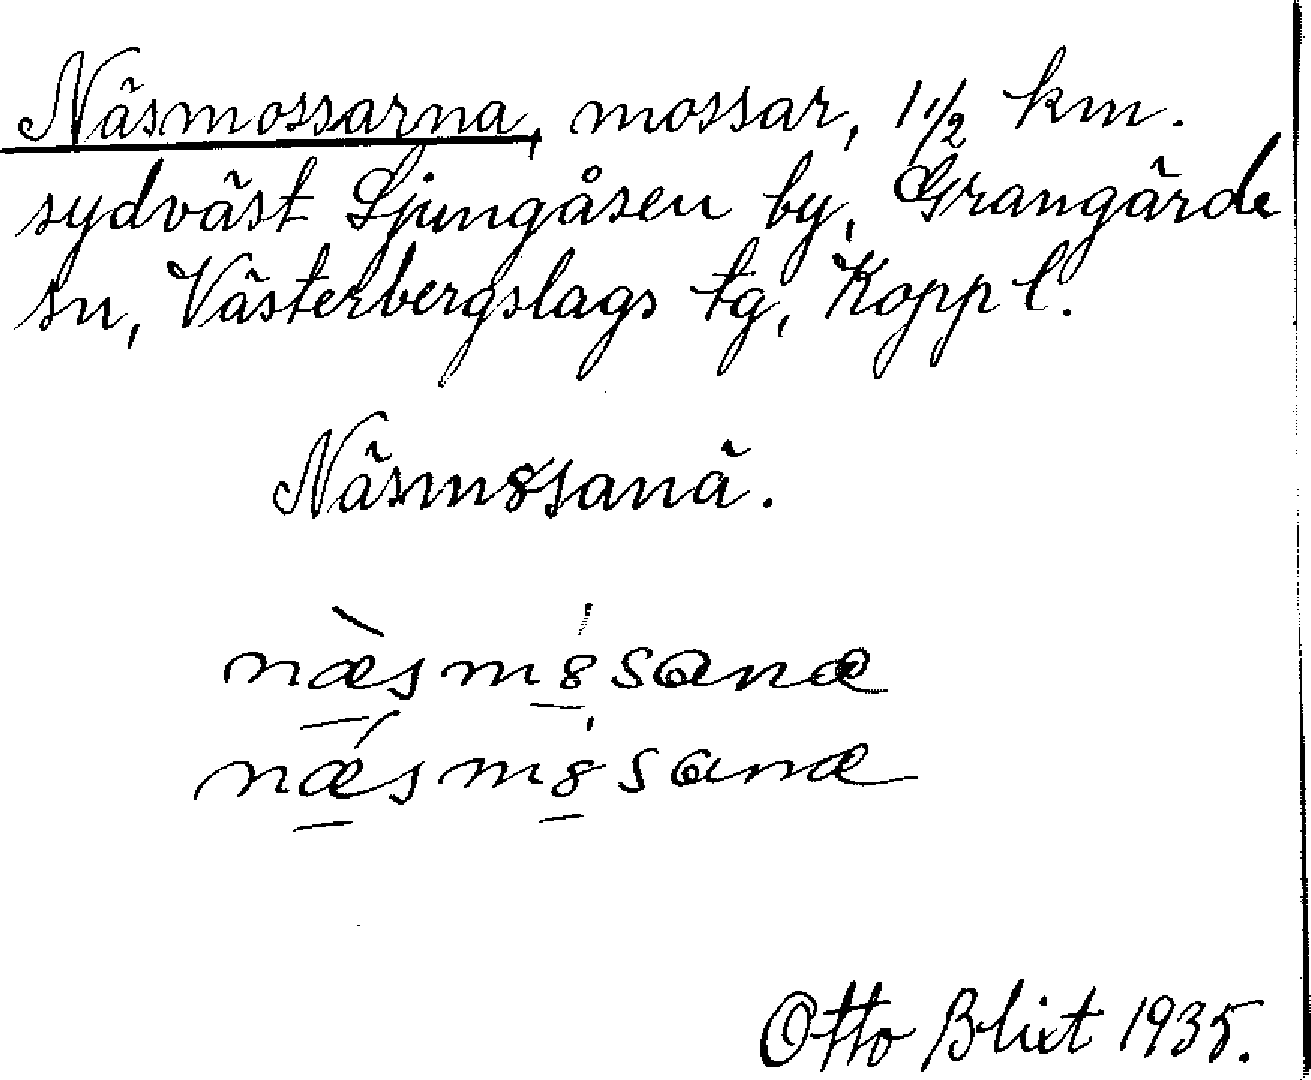 Näsmossarna, mossar, 1 1/2 km.
sydväst Ljungåsen by, Grangärde
sn, Västerbergslags tg, Kopp l.
Näsm8sanä.
næ̀sm8sanæ
nǽsm8sanæ
Otto Blixt 1935.